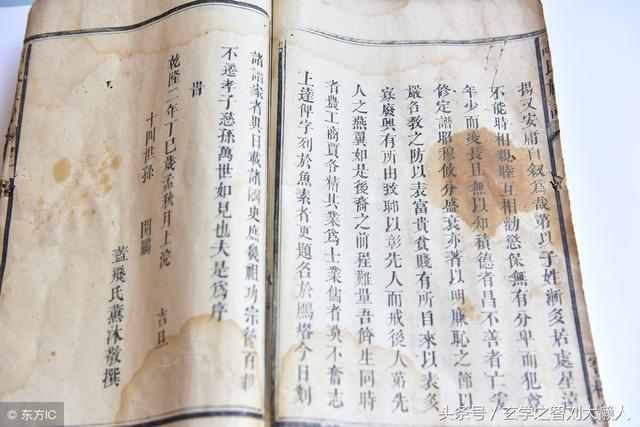 揚又安庸自叙為哉第以子姓漸多若處星
不能時相親睦互相勸慫保無有分卑而犯尊
年少而凌長且無以知積德者昌不善者亡爰
修定譜昭穆攸分盛衰亦著以明廉恥之節以
嚴名教之防以表富貴貧賤有所自來以表多
寡廢興有所由致聊以彰先人而戒後人第先
人之燕翼如是後裔之前程難量吾儕生同時
者農工商賈各精其業為士業儒者莫不奮志
上達俾字列於魚素者更題名於鴈塔今日劑
諸譜家者與日載諸國史庶幾祖功宗德百
不遷孝子慈孫萬世如見也夫是為序
旹
乾隆二年丁巳歲孟秋月上浣 吉旦
十四世孫 開鵬
蓋飛氏薰沐敬撰
氏族譜
东方IC
头条号／玄学之智刘大懒人